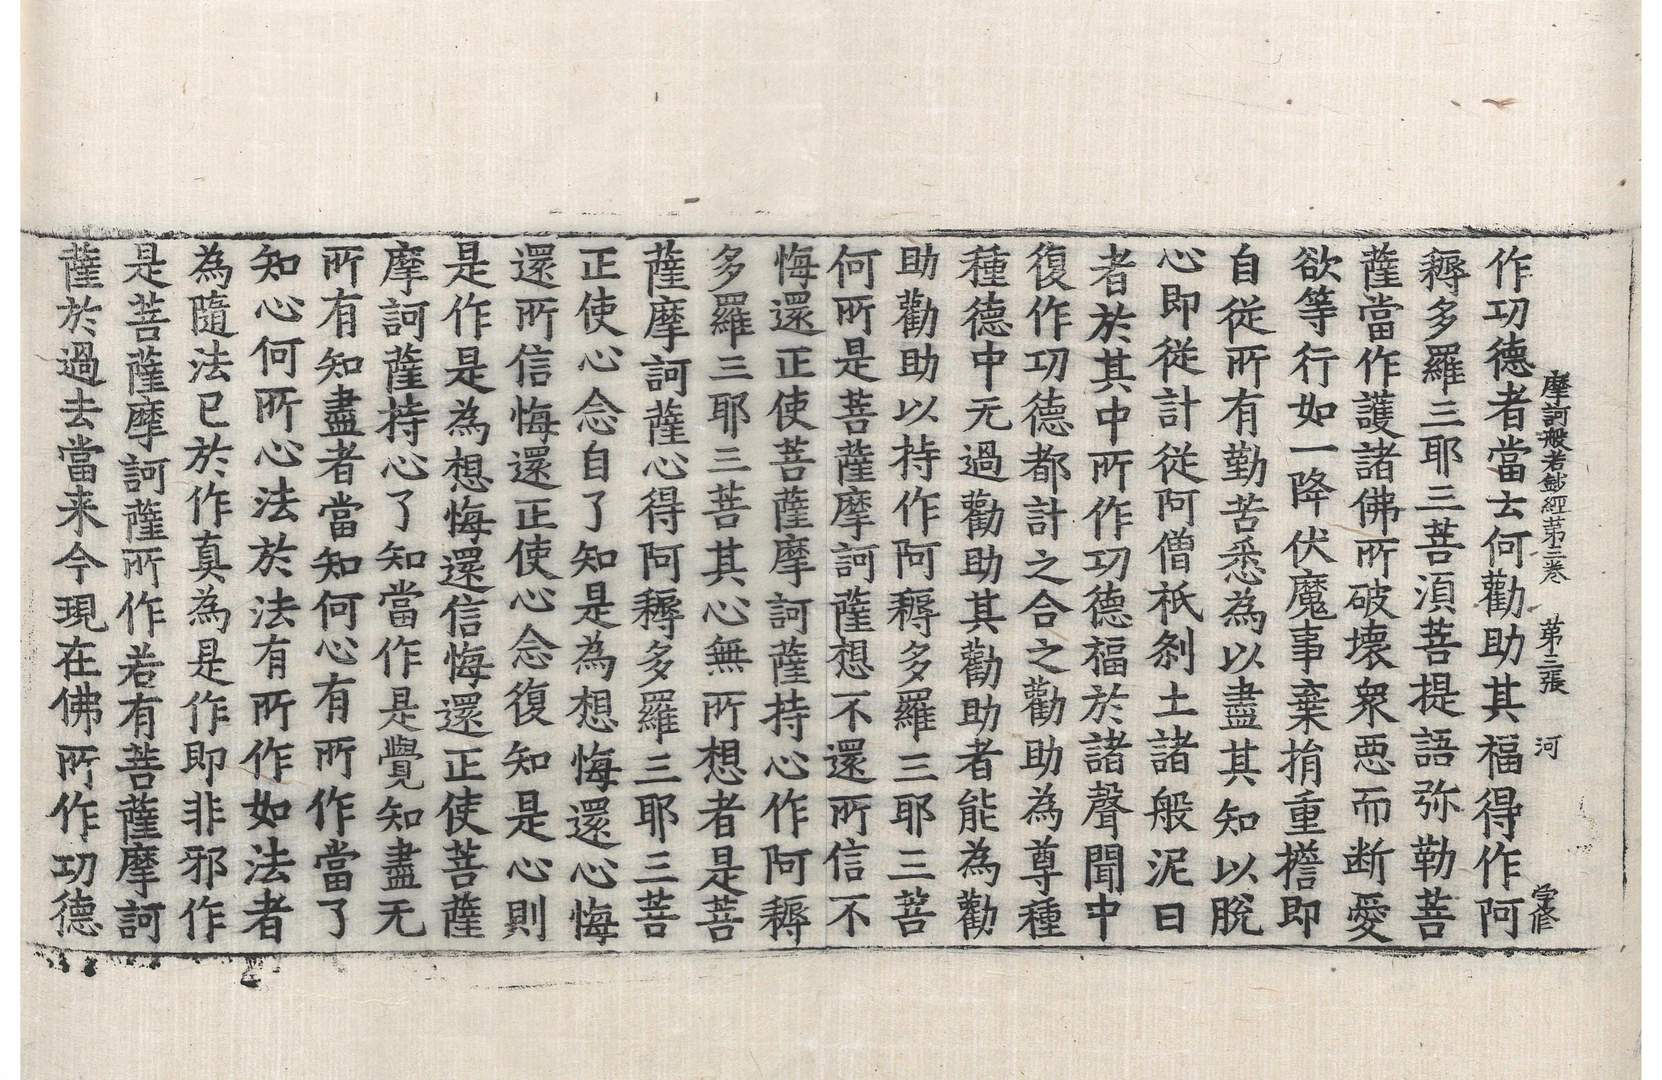 摩訶般若鈔經第三卷　第二張　河
作功德者當去何勸助其福得作阿
耨多羅三耶三菩湏菩提語弥勒菩
薩當作護諸佛所破壞衆惡而断愛
欲等行如一降伏魔事棄捐重擔即
自從所有勤苦悉為以盡其知以脫
心即從計從阿僧祇刹土諸般泥曰
者於其中所作功德福於諸聲聞中
復作功德都計之合之勸助為尊種
種德中无過勸助其勸助者能為勸
助勸助以持作阿耨多羅三耶三菩
何所是菩薩摩訶薩想不還所信不
悔還正使菩薩摩訶薩持心作阿耨
多羅三耶三菩其心無所想者是菩
薩摩訶薩心得阿耨多羅三耶三菩
正使心念自了知是為想悔還心悔
還所信悔還正使心念復知是心則
是作是為想悔還信悔還正使菩薩
摩訶薩持心了知當作是覺知盡无
所有知盡者當知何心有所作當了
知心何所心法於法有所作如法者
為隨法已於作真為是作即非邪作
是菩薩摩訶薩所作若有菩薩摩訶
薩於過去當来今現在佛所作功德